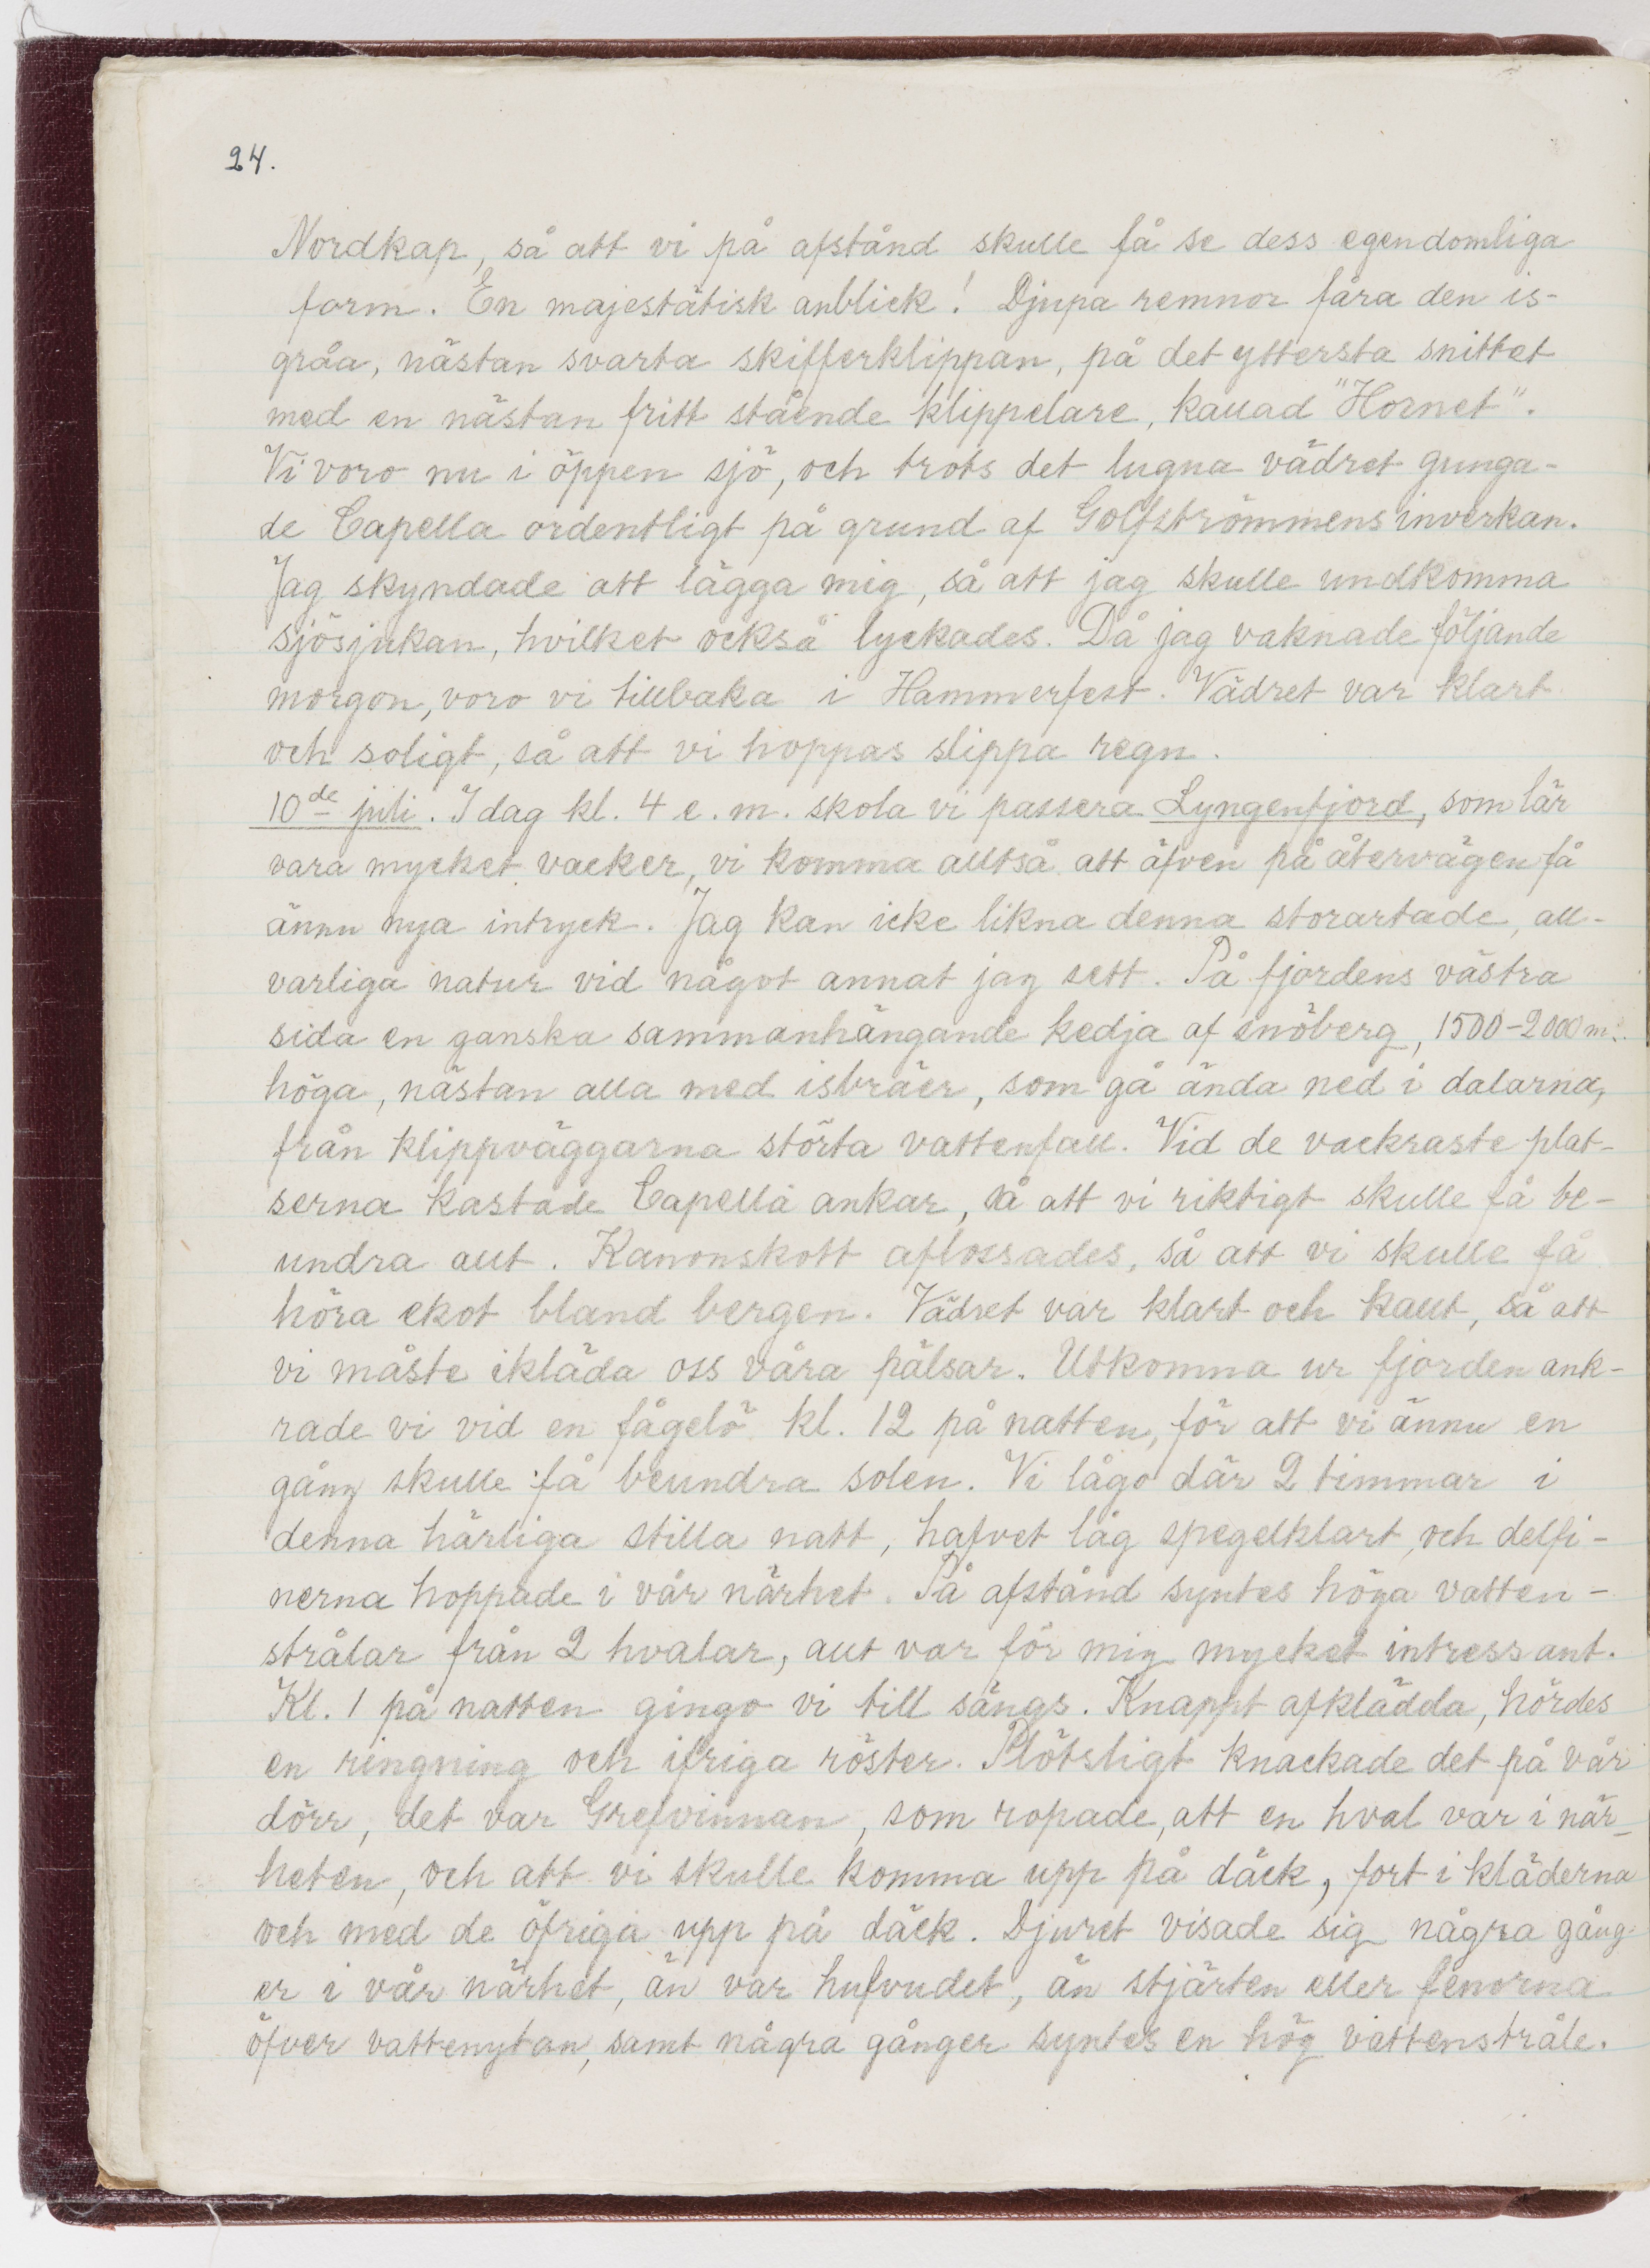 24.
Nordkap, så att vi på afstånd skulle få se dess egendomliga
form. En majestätisk anblick! Djupa remnor fåra den is-
gråa, nästan svarta skifferklippan, på det yttersta snittet
med en nästan fritt stående klippelare, kallad "Hornet".
Vi voro nu i öppen sjö, och trots det lugna vädret gunga-
de Capella ordentligt på grund af Golfströmmens inverkan.
Jag skyndade att lägga mig, så att jag skulle undkomma
sjösjukan, hvilket också lyckades. Då jag vaknade följande
morgon, voro vi tillbaka i Hammerfest. Vädret var klart
och soligt, så att vi hoppas slippa regn.
10de juli. I dag kl. 4 e. m. skola vi passera Lyngenfjord, som lär
vara mycket vacker, vi komma alltså att äfven på återvägen få
ännu nya intryck. Jag kan icke likna denna storartade, all-
varliga natur vid något annat jag sett. På fjordens västra
sida en ganska sammanhängande kedja af snöberg, 1500-2000 m.
höga, nästan alla med isbräer, som gå ända ned i dalarna,
från klippväggarna störta vattenfall. Vid de vackraste plat-
serna kastade Capella ankar, så att vi riktigt skulle få be-
undra allt. Kanonskott aflossades, så att vi skulle få
höra ekot bland bergen. Vädret var klart och kallt, så att
vi måste ikläda oss våra pälsar. Utkomna ur fjorden ank-
rade vi vid en fågelö kl. 12 på natten, för att vi ännu en
gång skulle få beundra solen. Vi lågo där 2 timmar i
denna härliga stilla natt, hafvet låg spegelklart, och delfi-
nerna hoppade i vår närhet. På afstånd syntes höga vatten-
strålar från 2 hvalar, allt var för mig mycket intressant.
Kl. 1 på natten gingo vi till sängs. Knappt afklädda, hördes
en ringning och ifriga röster. Plötsligt knackade det på vår
dörr, det var Grefvinnan, som ropade, att en hval var i när-
heten, och att vi skulle komma upp på däck, fort i kläderna
och med de öfriga upp på däck. Djuret visade sig några gång-
er i vår närhet, än var hufvudet, än stjärten eller fenorna
öfver vattenytan, samt några gånger syntes en hög vattenstråle.